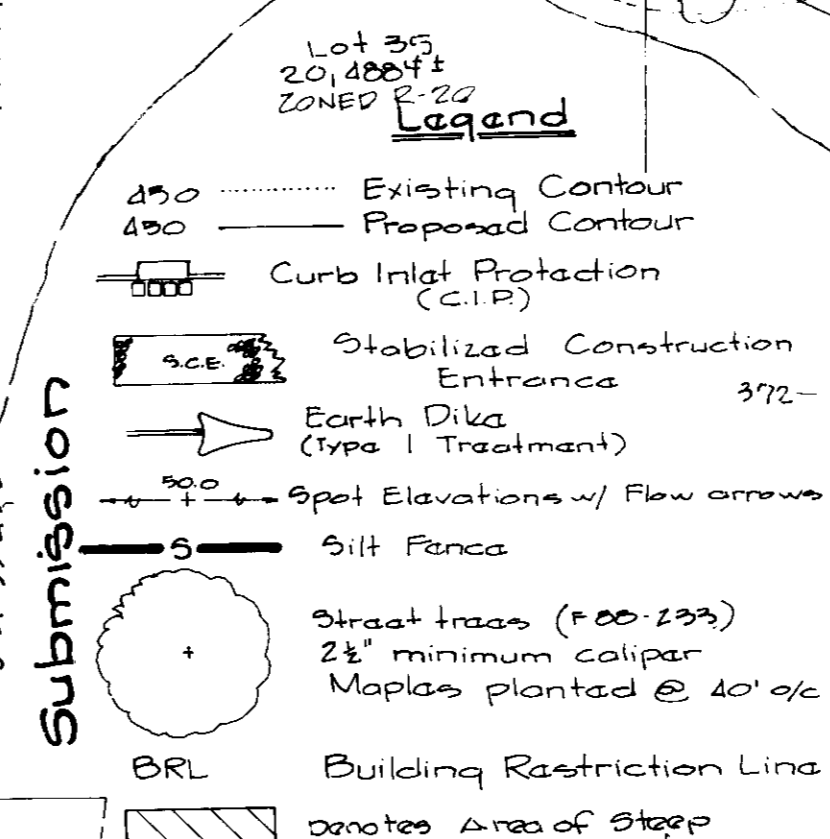 Lot 35
20,488 ㎡ ±
ZONED R-20
Legend
450 Existing Contour
450 Proposed Contour
Curb Inlet Protection
(C.I.P.)
S.C.E. Stabilized Construction
Entrance
372-
Earth Dike
(Type 1 Treatment)
50.0
Spot Elevations w/ Flow arrows
S Silt Fence
Street trees (F 88-233)
2½" minimum caliper
Maples planted @ 40' o/c
BRL Building Restriction Line
Denotes Area of Steep
Submission